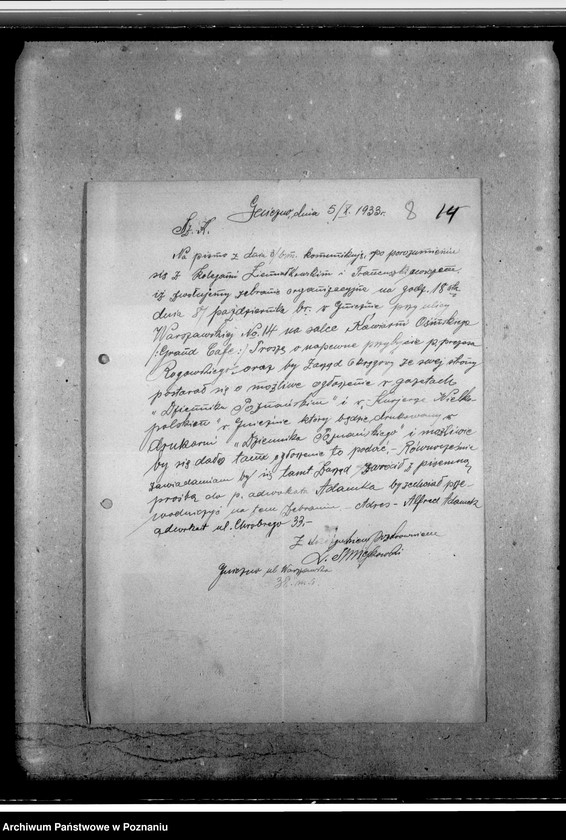 Gniezno, dnia 5/X. 1933r. 8 14
Sz. K.
Na pismo z dnia /bm. komunikuję, po porozumieniu
się z Kolegami i
iż zwołujemy zebranie organizacyjne na godz. 18 tą
dnia 8/ października br. w Gnieźnie przy ulicy
Warszawskiej No. 14 na salce Kawiarni Osińskiego
/:Grand Cafe:/ Proszę o napewne przybycie p. prezesa
Rogowskiego oraz by Zarząd Okręgowy ze swej strony
postarał się o możliwe ogłoszenie w gazetach
"Dzienniku Poznańskim" i w "Kurjerze Wielko-
polskim" w Gnieźnie który będzie drukowany w
drukarni "Dziennika Poznańskiego" i możliwie
by się dało tam ogłoszenie to podać. - Równocześnie
zawiadamiam by się tamt. Zarząd zwrócił z pisemną
prośbą do p. adwokata Adamka by zechciał prze-
wodniczyć na tem Zebraniu. - Adres - Alfred Adamek
adwokat ul. Chrobrego 33.-
Z
L.
Gniezno ul. Warszawska
38
Archiwum Państwowe w Poznaniu